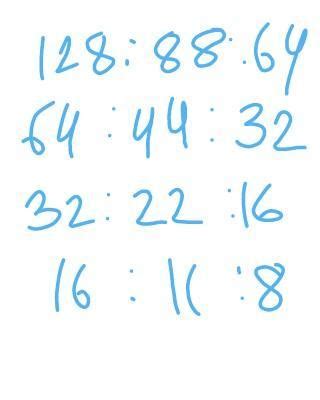 128:88:64
64:44:32
32:22:16
16:11:8